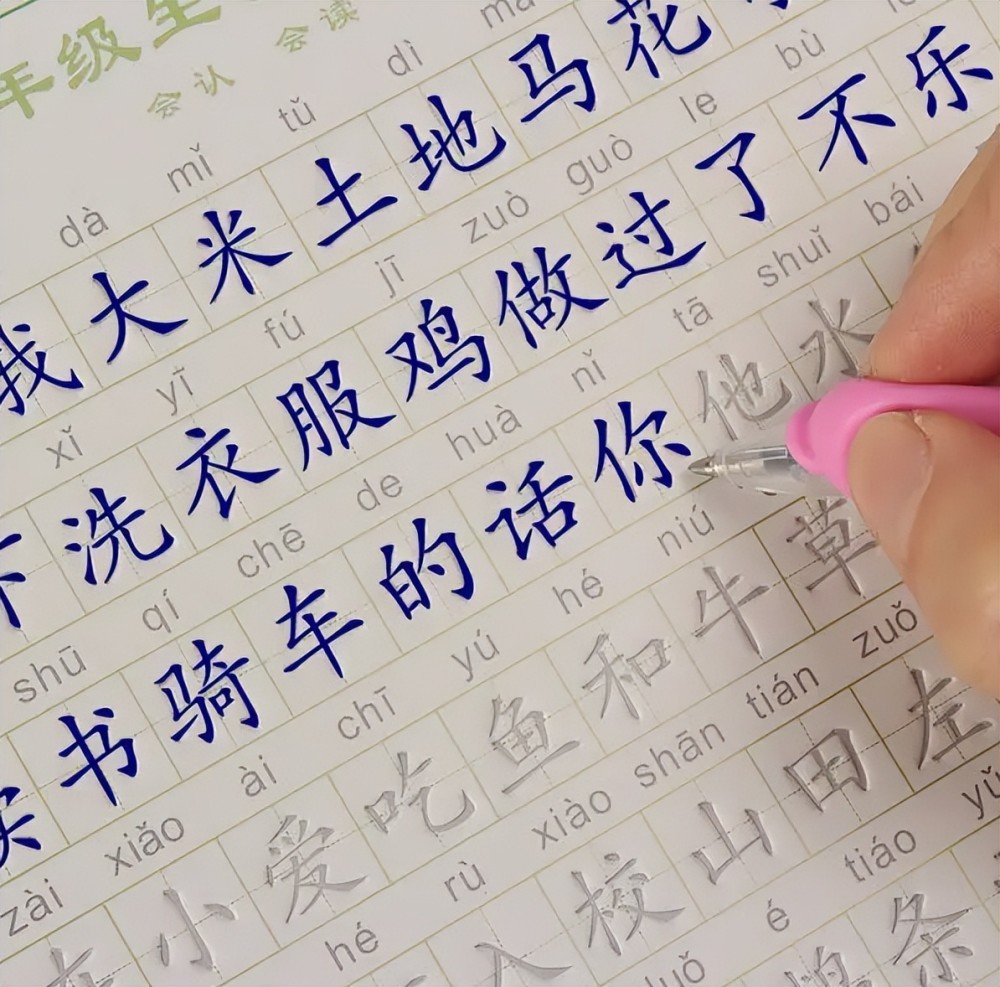 年级生
会认 会读
dà mǐ tǔ dì
我大米土地马花
xǐ yī fú jī zuò guò le bù
洗衣服鸡做过了不乐
shū qí chē de huà nǐ tā shuǐ bái
书骑车的话你他水
zài xiǎo ài chī yú hé niú
在小爱吃鱼和牛草
hé rù xiào shān tián zuǒ
入校山田左
é tiáo
条